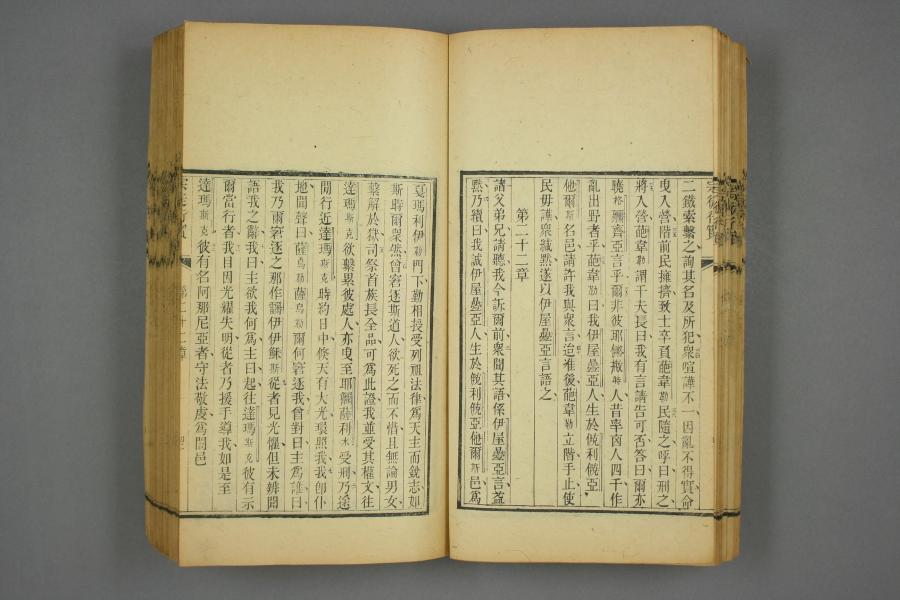 二鐵索繫之詢其名及所犯衆喧譁不一因亂不得實命
曳入營階前民擁擠致士卒負葩韋勒民隨之呼曰刑之
將入營葩韋勒謂千夫長曰我有言請告可否答曰爾亦
曉格爾齊亞言乎爾非彼耶撒特人昔率凶人四千作
亂出野者乎葩韋勒曰我伊屋亞人生於俄利俄亞
他爾斯名邑請許我與衆言迨准後葩韋勒立階手止使
民毋譁衆緘黙遂以伊屋亞言語之
第二十二章
諸父弟兄請聽我今訴爾前衆聞其語係伊屋亞言益
黙乃續曰我誠伊屋亞人生於俄利俄亞他爾斯邑爲
戛瑪利伊勒門下勤相授受列祖法律爲天主而銳志如
斯時爾衆然曾窘逐斯道人欲死之而不惜且無論男女
縶解於獄司祭首族長全品可爲此證我並受其權文往
達瑪斯克欲繫累彼處人亦曳至耶薩利木受刑乃遙
間行近達瑪斯克時約日中倏天有大光環照我我卽仆
地聞聲曰薩烏勒薩烏勒爾何窘逐我曾對曰主爲誰曰
我乃爾窘逐之那作伊伊穌斯從者見光懼但未辨聞
語我之辭我曰主欲我何爲主曰起往達瑪斯克彼有示
爾當行者我目因光耀失明從者乃援手導我如是至
達瑪斯克彼有名阿那尼亞者守法敬虔爲閭邑
宗徒行實
第二十二章